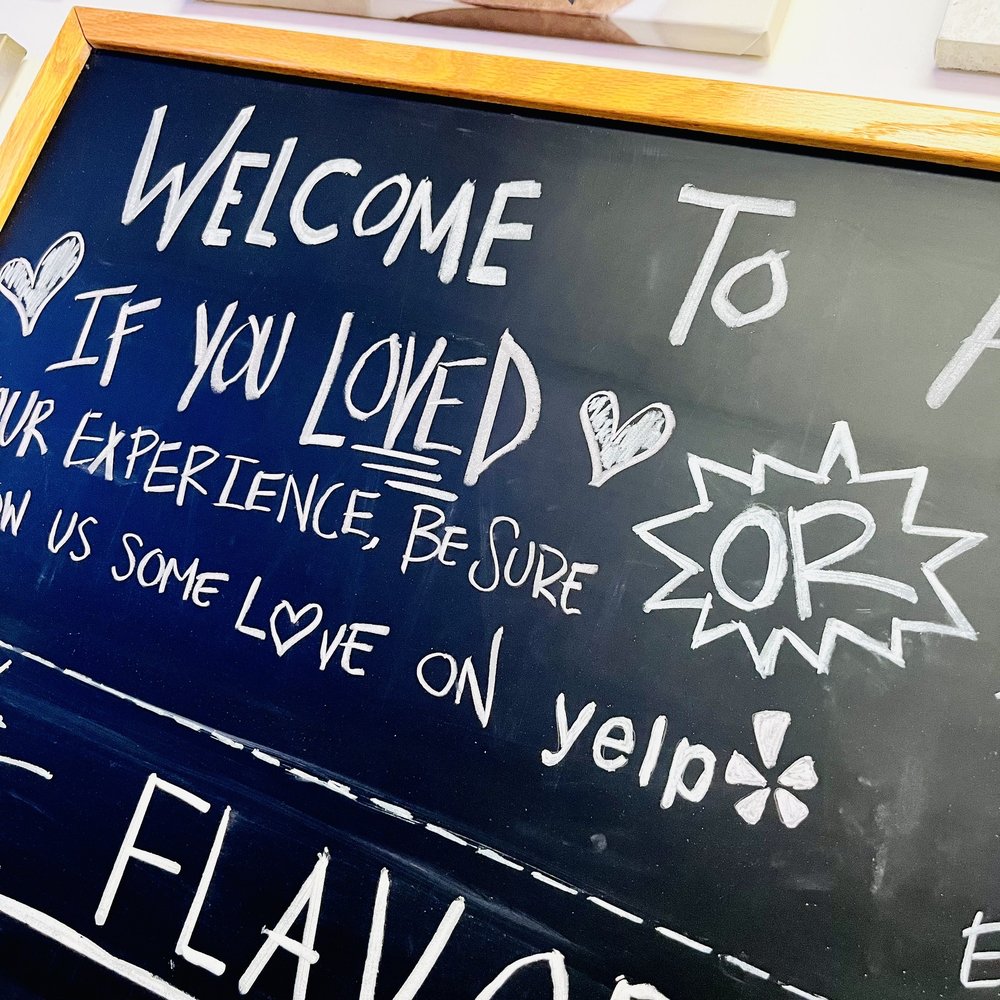 WELCOME TO
IF YOU LOVED
OUR EXPERIENCE, BE SURE
US SOME LOVE ON yelp
OR
FLAVO